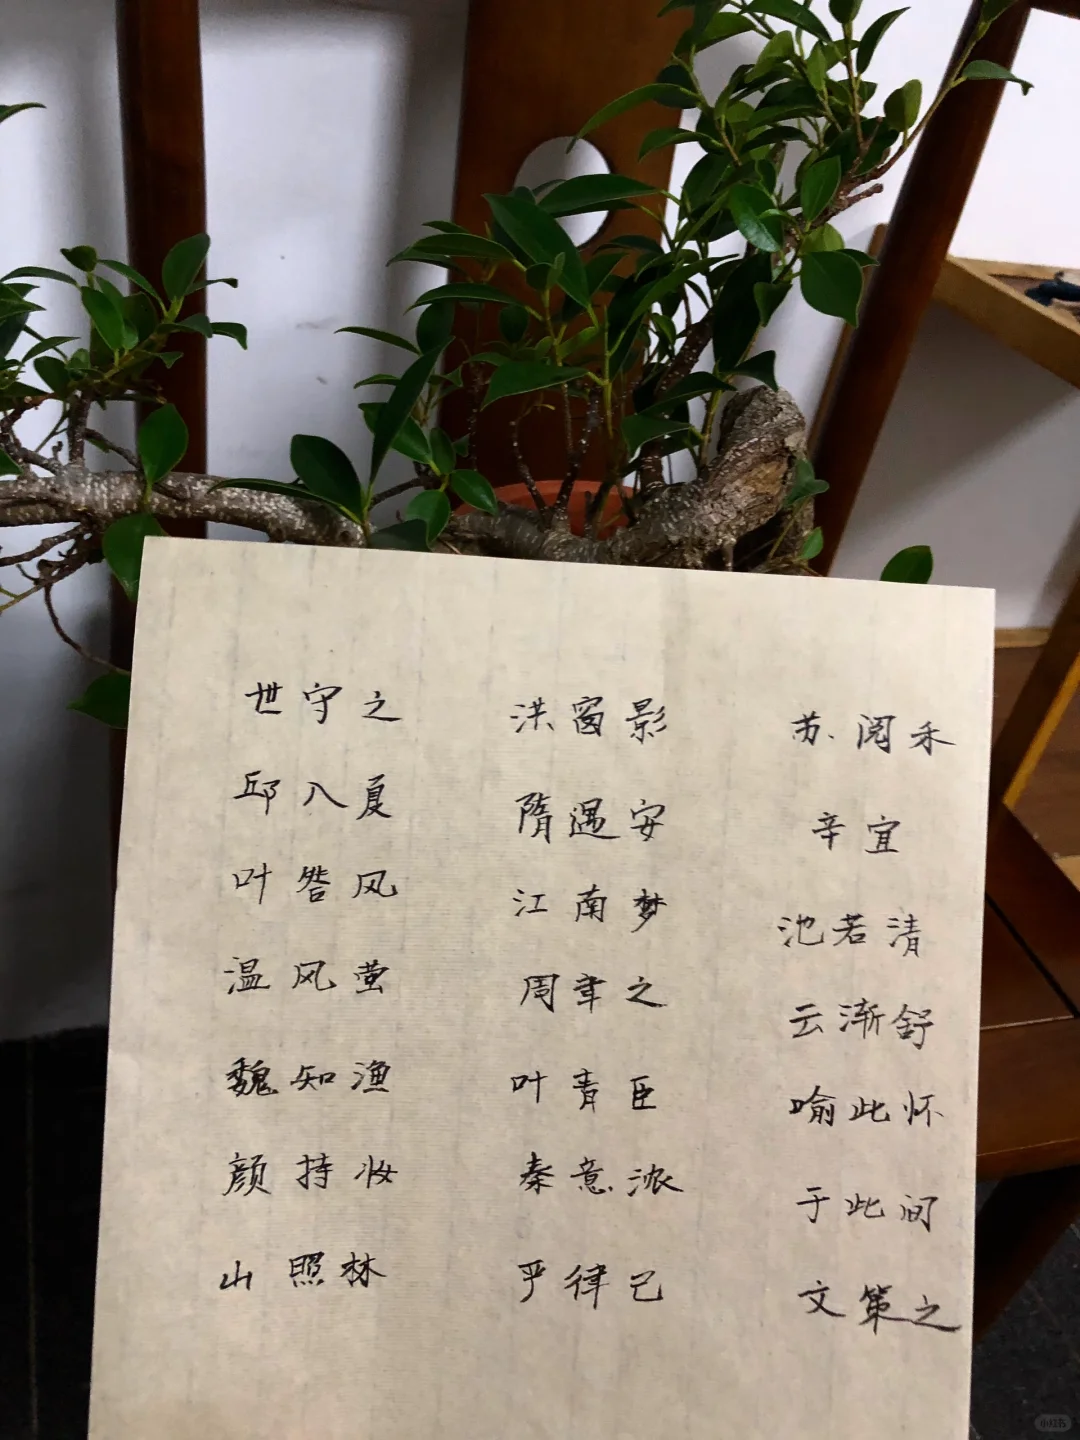 世守之
邱八夏
叶喾风
温风萤
魏知渔
颜持妆
山照林
洪窗影
隋遇安
江南梦
周聿之
叶青臣
秦意浓
严律己
苏阅禾
辛宜
池若清
云渐舒
喻此怀
于此间
文策之